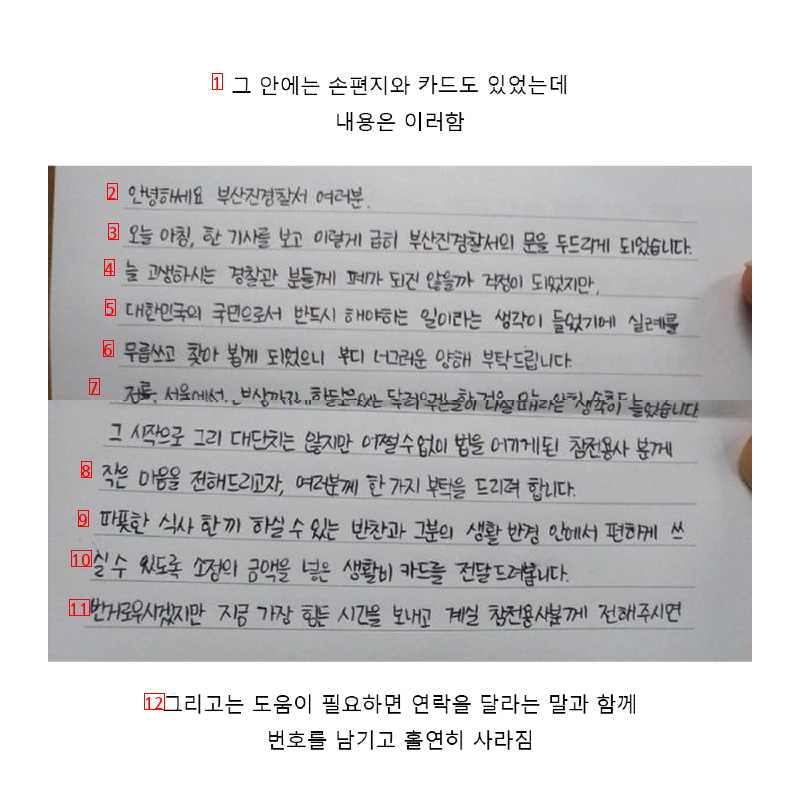 1 그 안에는 손편지와 카드도 있었는데
내용은 이러함
2 안녕하세요 부산진경찰서 여러분.
3 오늘 아침, 한 기사를 보고 이렇게 급히 부산진경찰서의 문을 두드리게 되었습니다.
4 늘 고생하시는 경찰관 분들께 폐가 되진 않을까 걱정이 되었지만,
5 대한민국의 국민으로서 반드시 해야하는 일이라는 생각이 들었기에 실례를
6 무릅쓰고 찾아 뵙게 되었으니 부디 너그러운 양해 부탁드립니다.
7 서울에서, 들었습니다
그 시작으로 그리 대단치는 않지만 어쩔수없이 법을 어기게된 참전용사 분께
8 작은 마음을 전해드리고자, 여러분께 한가지 부탁을 드리려 합니다.
9 따뜻한 식사 한끼 하실 수 있는 반찬과 그분의 생활 반경 안에서 편하게 쓰
10 실 수 있도록 소정의 금액을 넣은 생활비 카드를 전달드려봅니다.
11 번거로우시겠지만 지금 가장 힘든 시간을 보내고 계실 참전용사분께 전해주시면
12 그리고는 도움이 필요하면 연락을 달라는 말과 함께
번호를 남기고 홀연히 사라짐